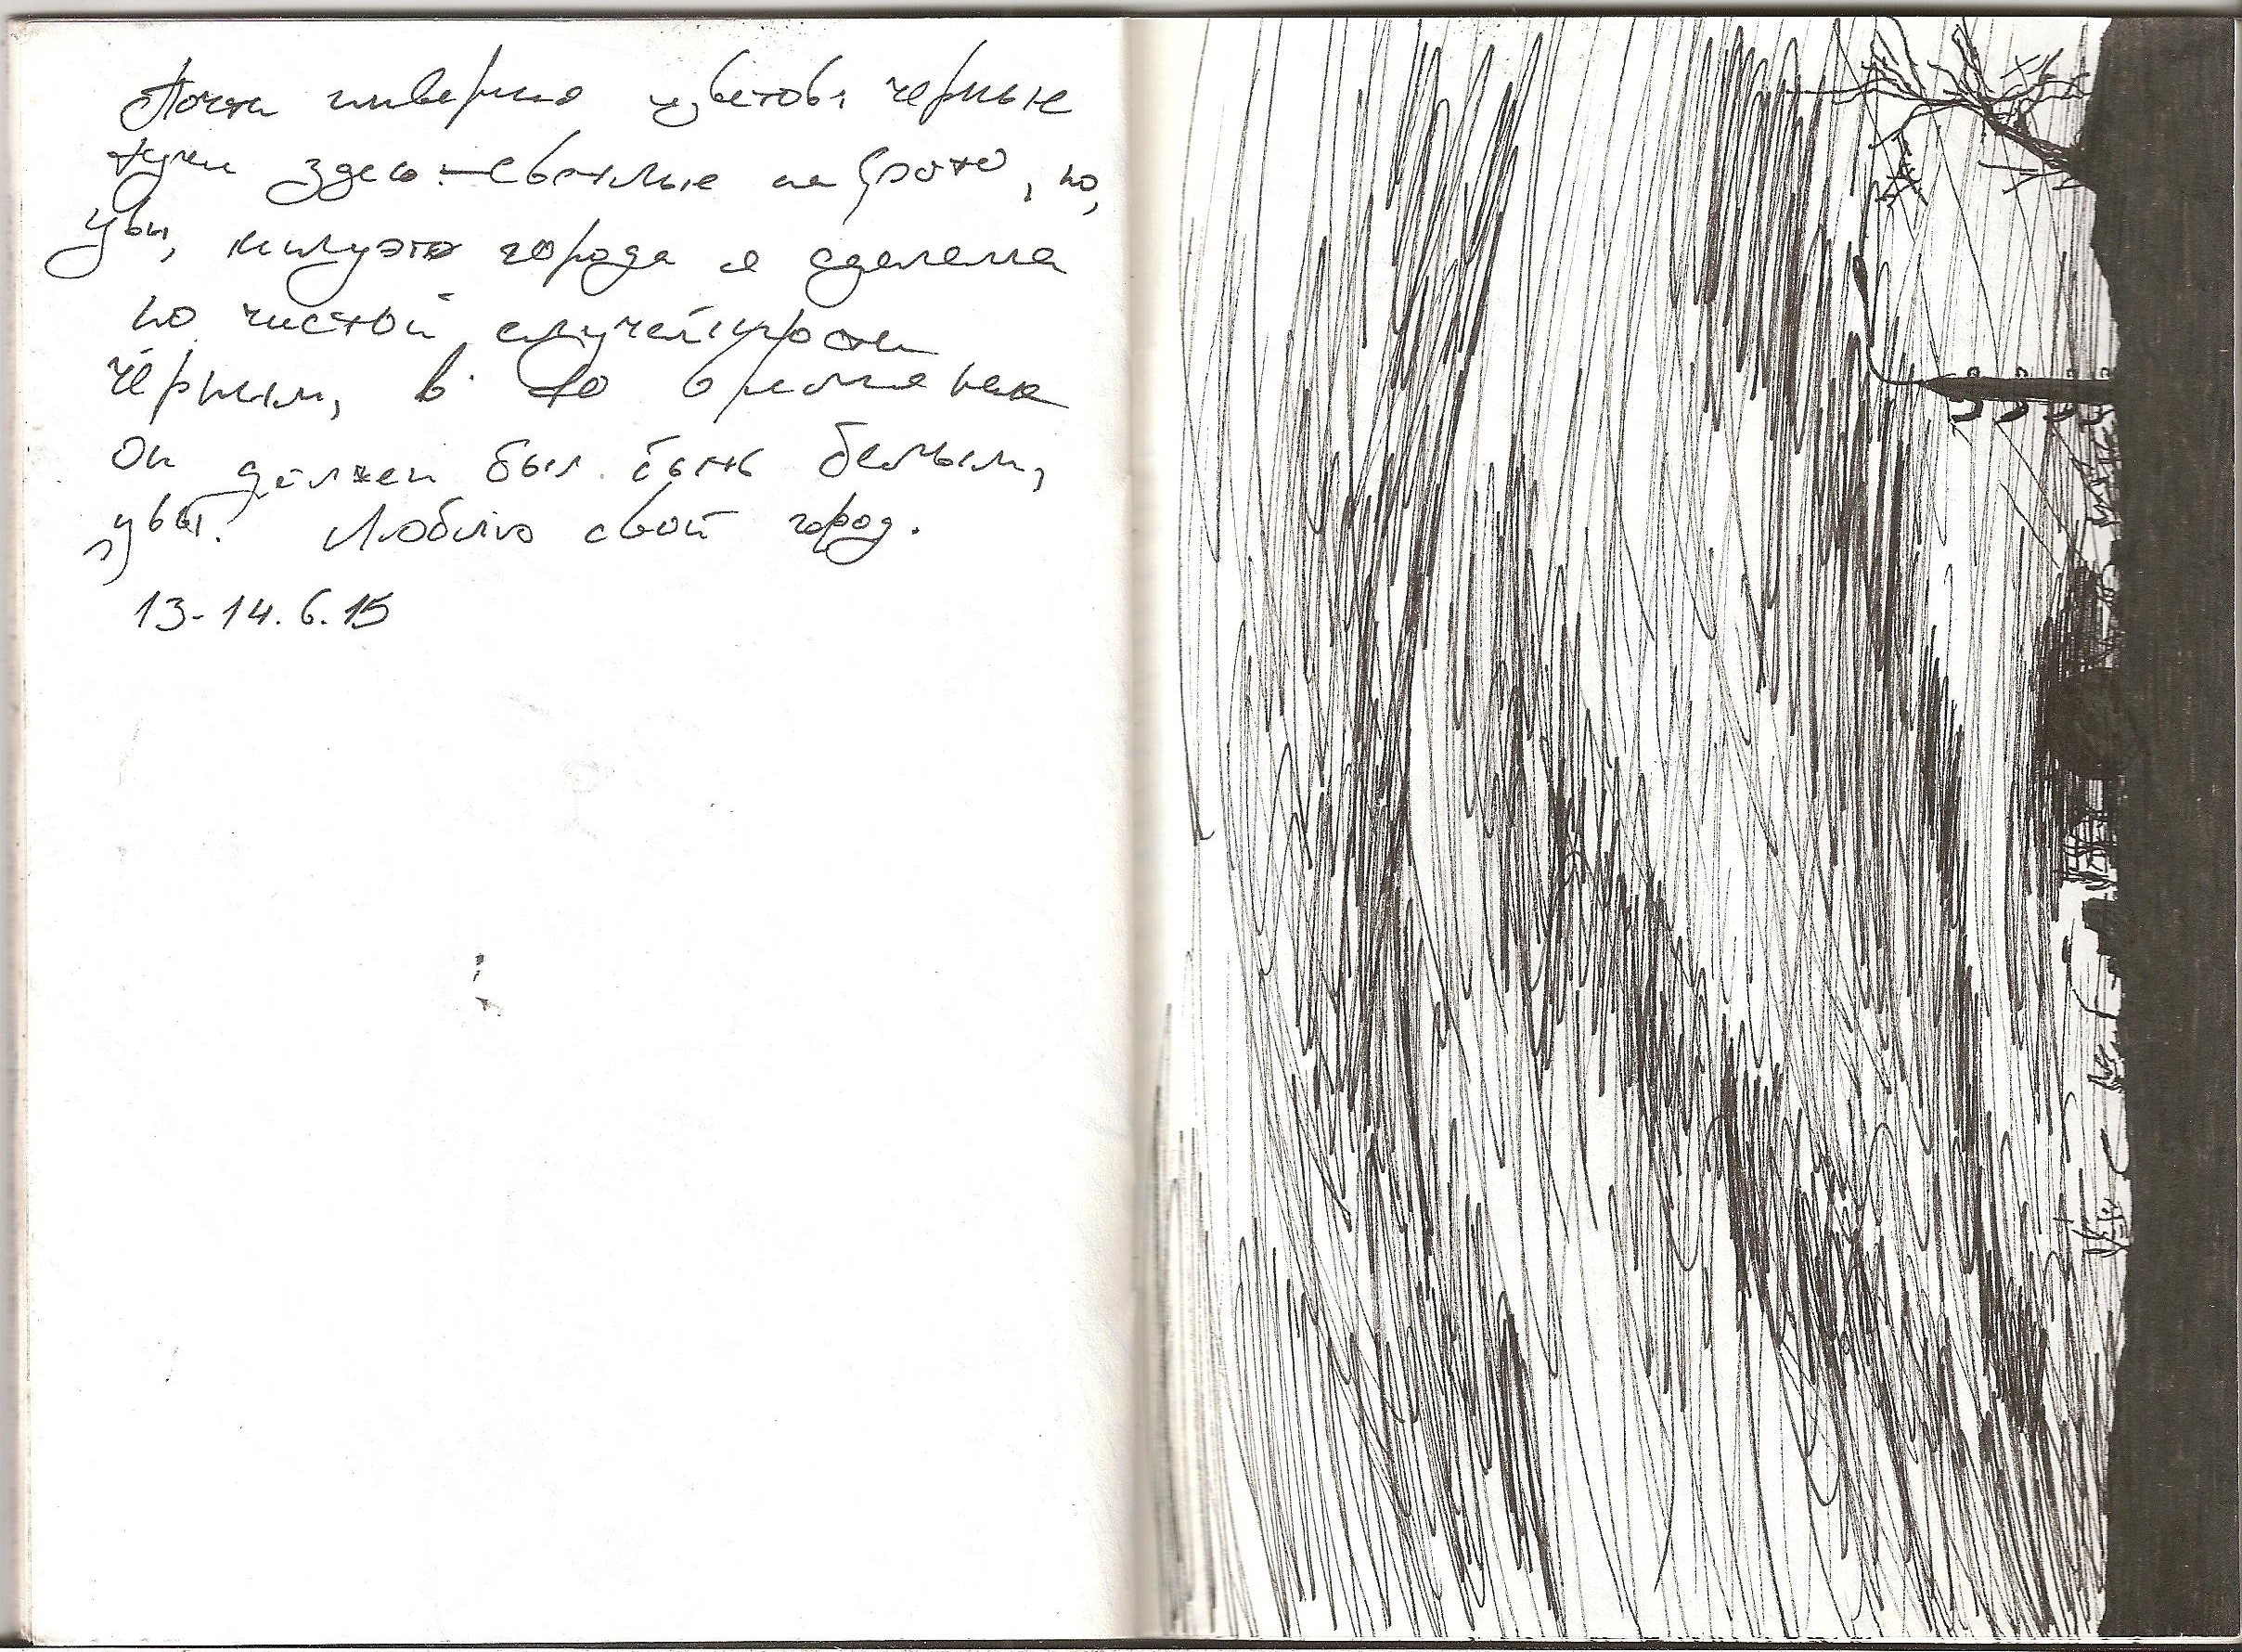 Почти инверсия цветов: черные
тучи здесь – светлые на фото, но,
увы, силуэт города я сделала
по чистой случайности
чёрным, в то время как
он должен был быть белым,
увы! Люблю свой город.
13-14.6.15